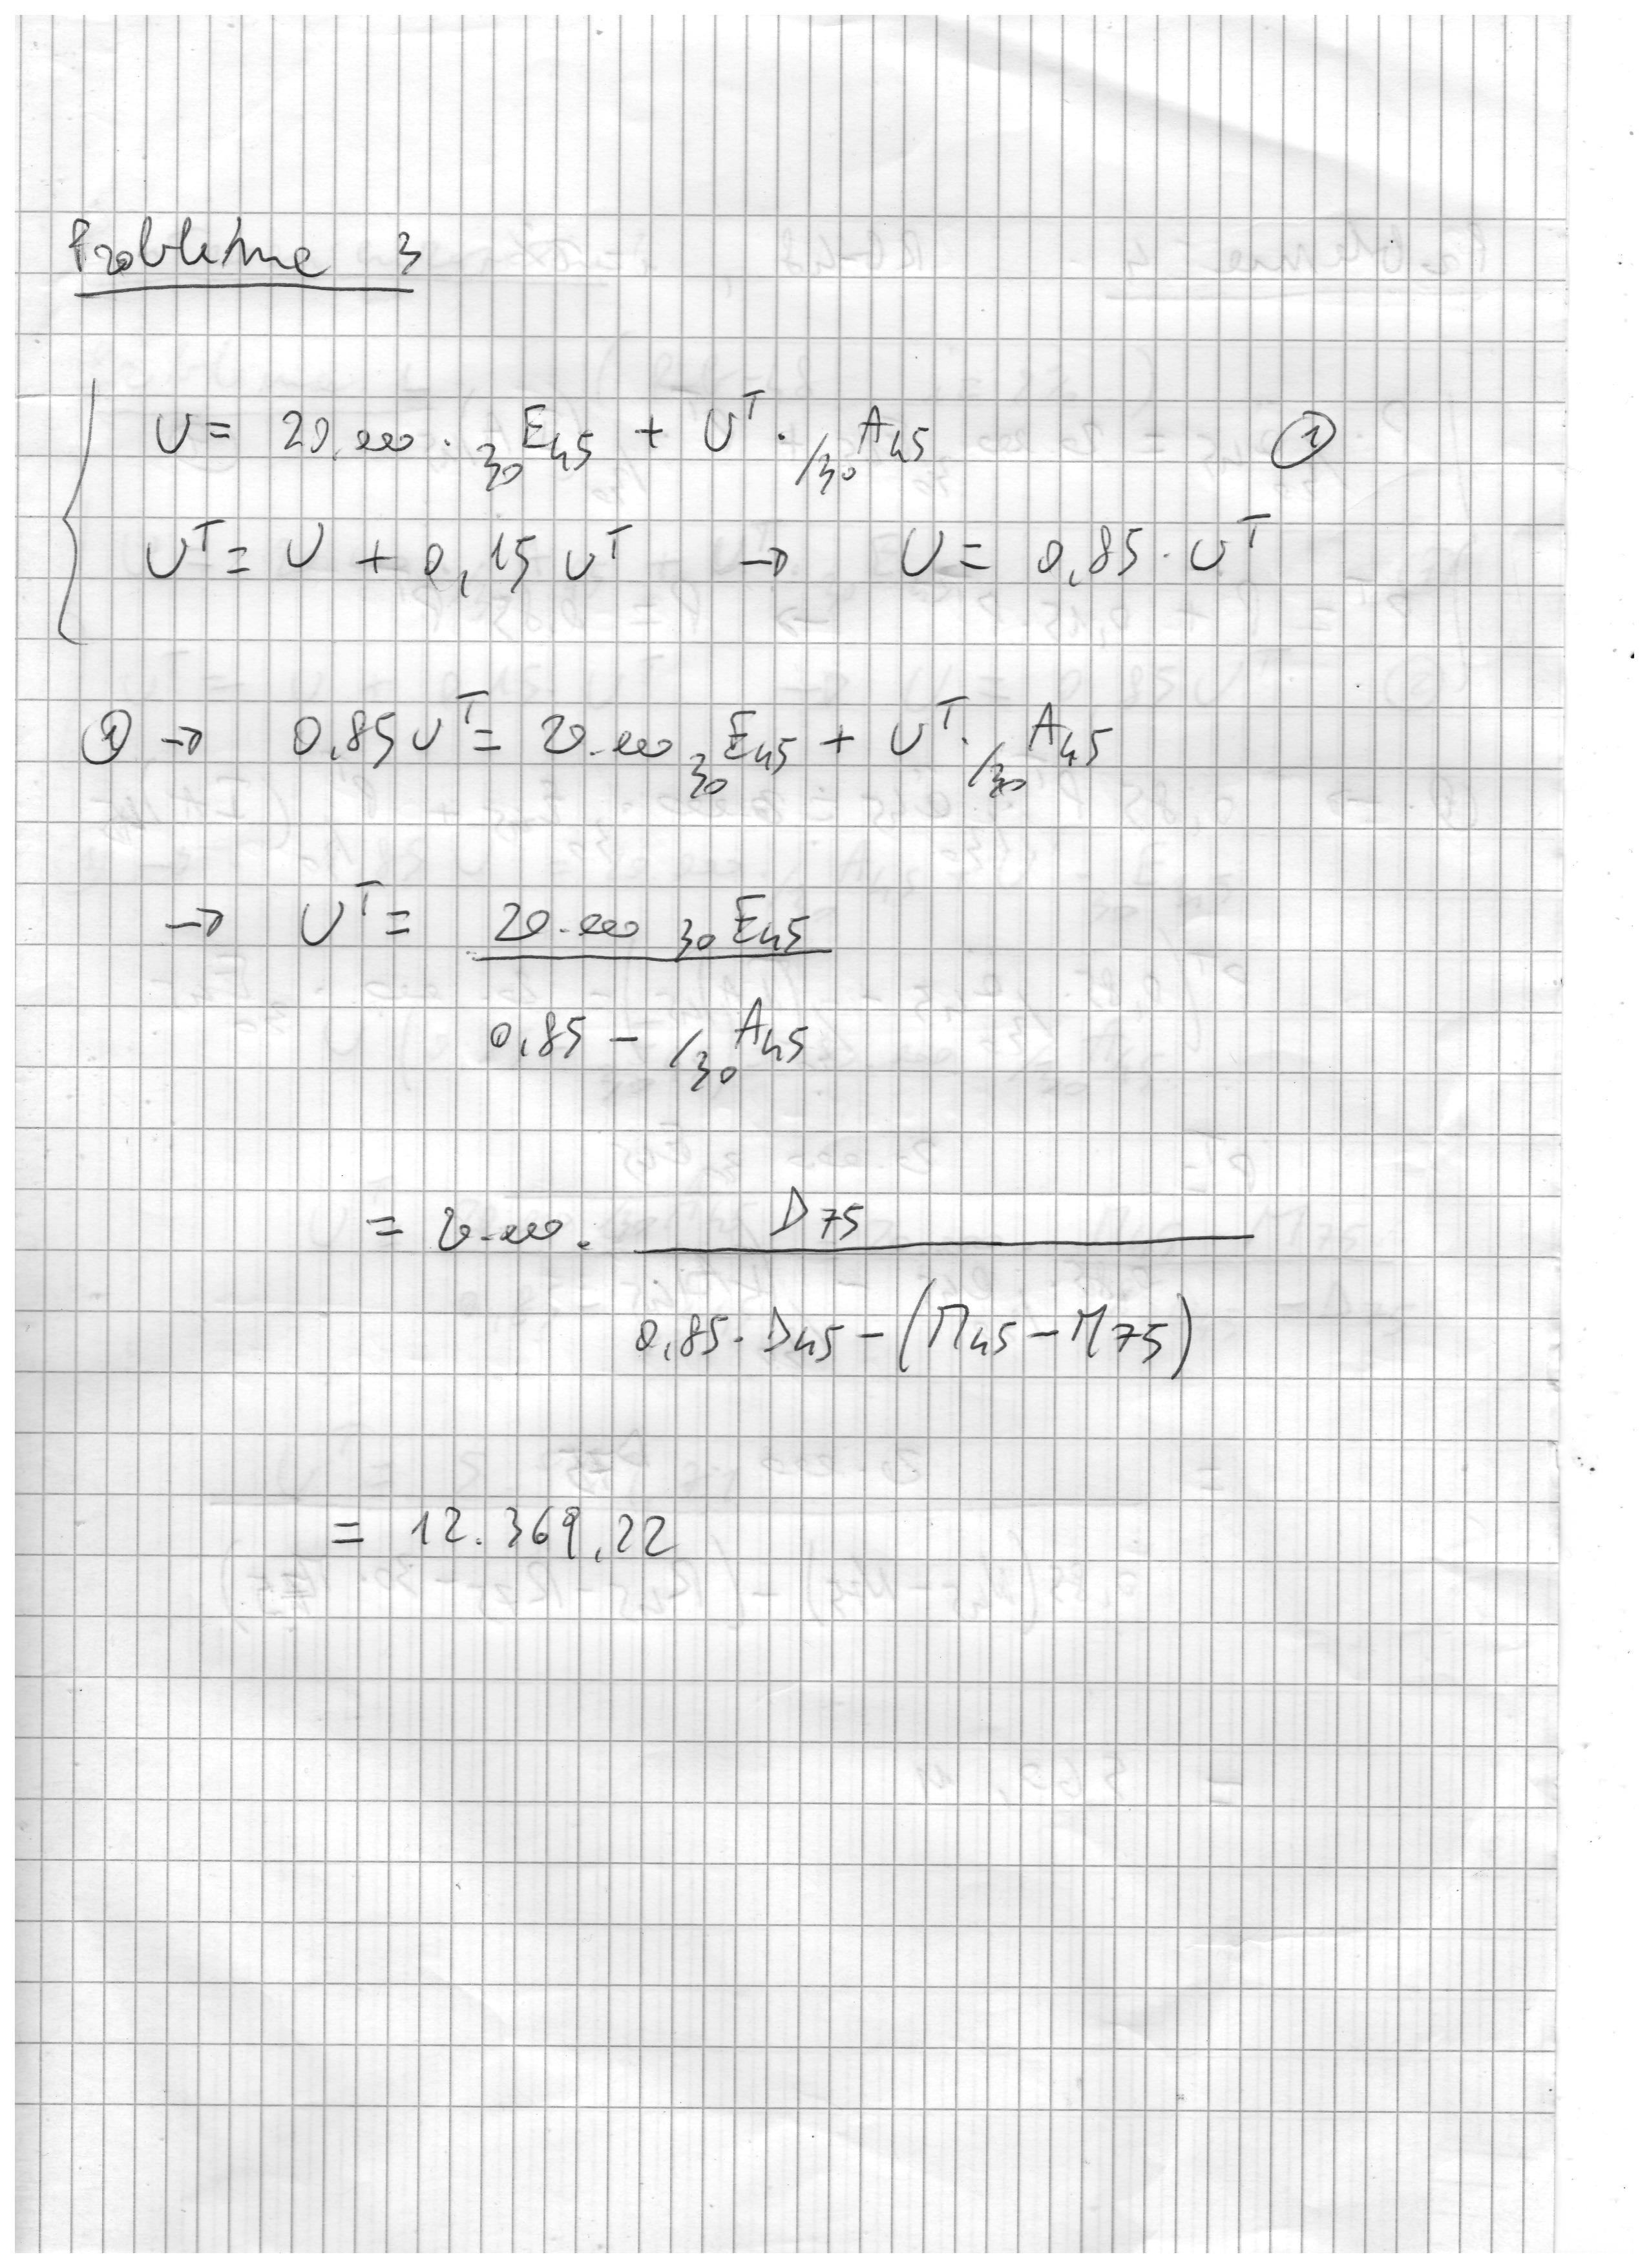 Problème 3
U = 20.000 · ₃₀E₄₅ + Uᵀ · /₃₀A₄₅ ①
Uᵀ = U + 0,15 Uᵀ → U = 0,85 · Uᵀ
① → 0,85 Uᵀ = 20.000 ₃₀E₄₅ + Uᵀ · /₃₀A₄₅
→ Uᵀ = 20.000 ₃₀E₄₅
0,85 - /₃₀A₄₅
= 20.000 · D₇₅
0,85 · D₄₅ - (M₄₅ - M₇₅)
= 12.369,22